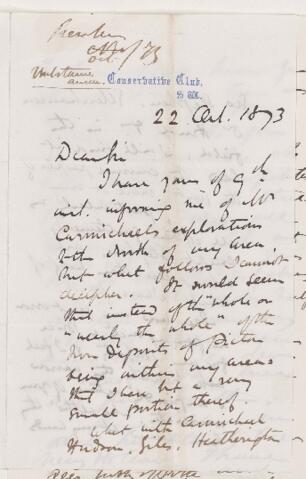 Conservative Club,
S.W.
22 Oct. 1873
Dear Sir
I have yours of 9th
inst. informing me of Mr
Carmichaels explorations
to the North of my area,
but what follows I cannot
decipher. It would seem
that instead of the "whole or
"nearly the whole" of the
Iron Deposits of Pictou
being within my areas
that I have but a very
small portion thereof.
What with Carmichael
Hudson, Giles, Heatherington